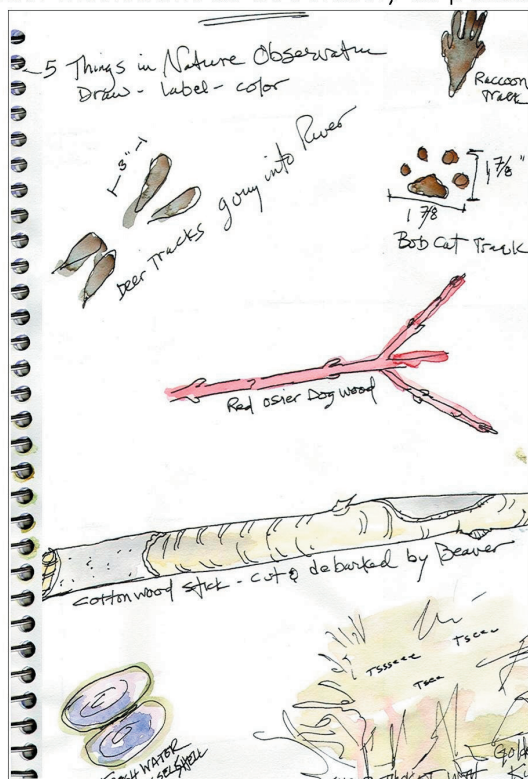 5 Things in Nature Observation
Draw - label - color
Raccoon
Track
3"
Deer Tracks going into River
1 7/8"
1 7/8
Bob Cat Track
Red osier Dogwood
Cottonwood stick - cut & debarked by Beaver
Tsseeee
Tseee
Tsee
FRESH WATER
SHELL